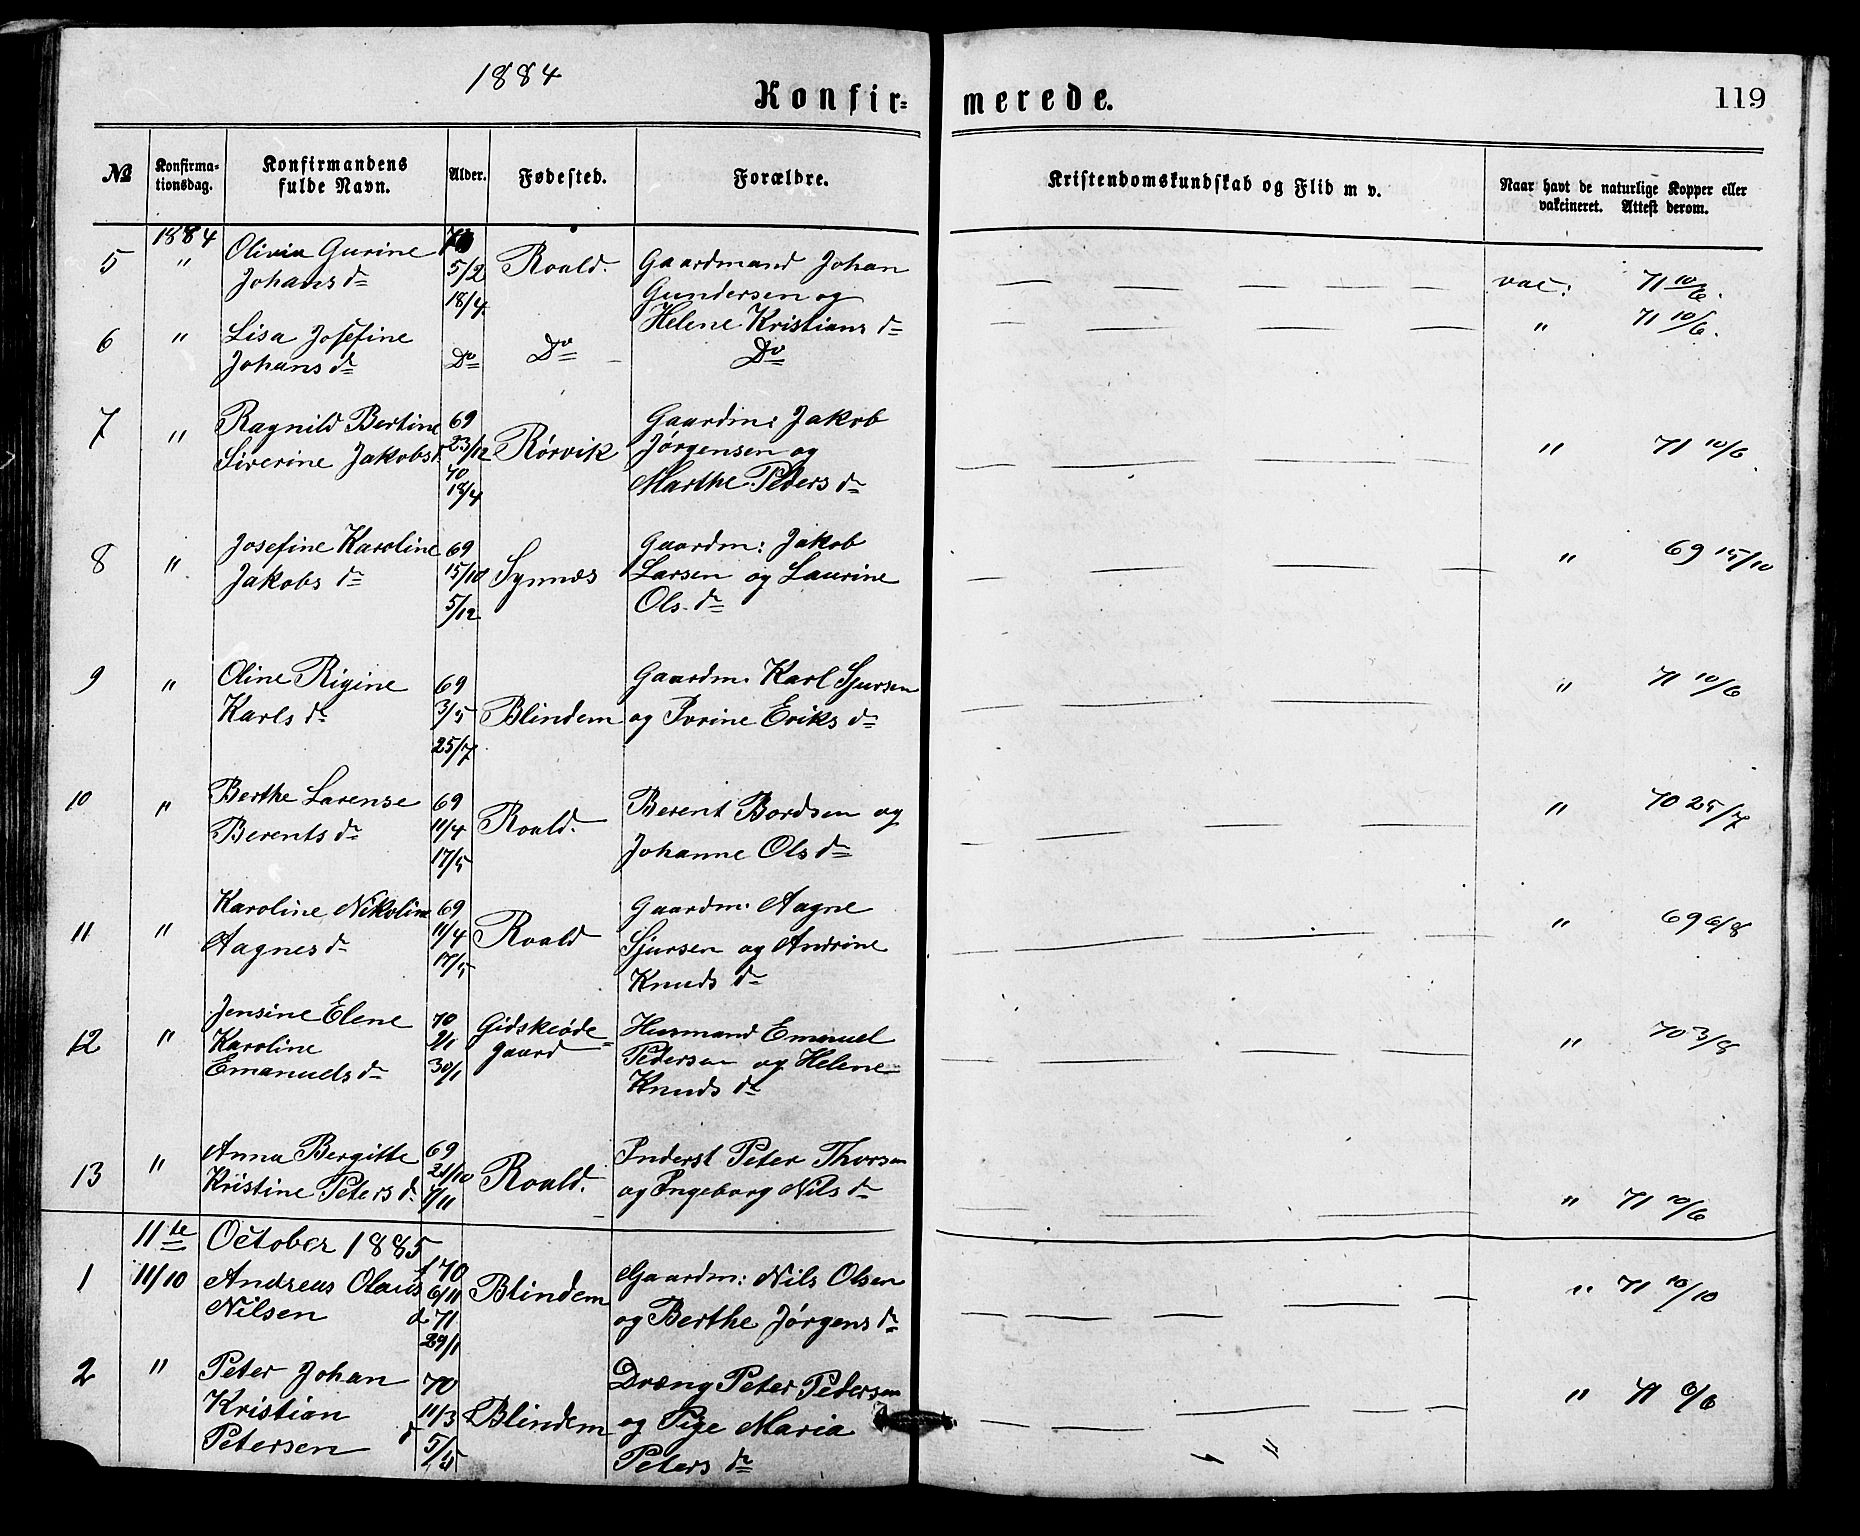 1884
Konfir= merede. 119
№ Konfirma=tionsdag. Konfirmandens fulde Navn. Alder. Fødested. Forældre. Kristendomskundskab og Flid m v. Naar havt de naturlige Kopper eller vakcineret. Attest derom.
1884
5 " Olivia Gurine 5/2 Roald. Gaardmand Johan vac: 71 10/6.
Johans dr 18/4 Gundersen og
Helene Kristians dr
6 " Lisa Josefine " 71 10/6.
Johans dr Do Do Do
7 " Ragnild Bertine 69 Gaardm: Jakob
Siverine Jakobs d. 23/12 Rørvik Jørgensen og " 71 10/6
70 18/4 Marthe Peders dr
8 " Josefine Karoline 69 Gaardm: Jakob " 69 15/10
Jakobs dr 15/10 Synnæs Larsen og Laurine
5/12 Ols. dr
9 " Oline Rigine 69 Gaardm. Karl Sjursen " 71 10/6
Karls dr 3/5 Blindem og Ivrine Eriks dr
25/7
10 " Berthe Larense 69 Berent Bordsen og " 70 25/7
Berents dr 11/4 Roald. Johanne Ols dr
17/5
11 " Karoline Nikoline 69 Gaardm. Aagne " 69 6/8
Aagnes dr 11/4 Roald Sjursen og Andrine
17/5 Knuds dr
12 " Jensine Elene 70 Gidskeøde= Husmand Emanuel " 70 3/8
Karoline 2/1 gaard Pedersen og Helene
Emanuels dr 30/1 Knuds dr
13 " Anna Bergitte 69 Inderst Peter Thorsen
Kristine Peters d. 21/10 Roald. og Ingeborg Nils dr " 71 10/6
7/11
11te October 1885
1 11/10 Andreas Olaus f 70 Blindem Gaardm: Nils Olsen " 71 10/10
Nilsen 6/11 og Berthe Jørgens dr
d 71
29/1
2 " Peter Johan 70 Dræng Peter Pedersen " 71
Kristian 11/3 Blindem og Pige Maria
Petersen d 5/5 Peters dr